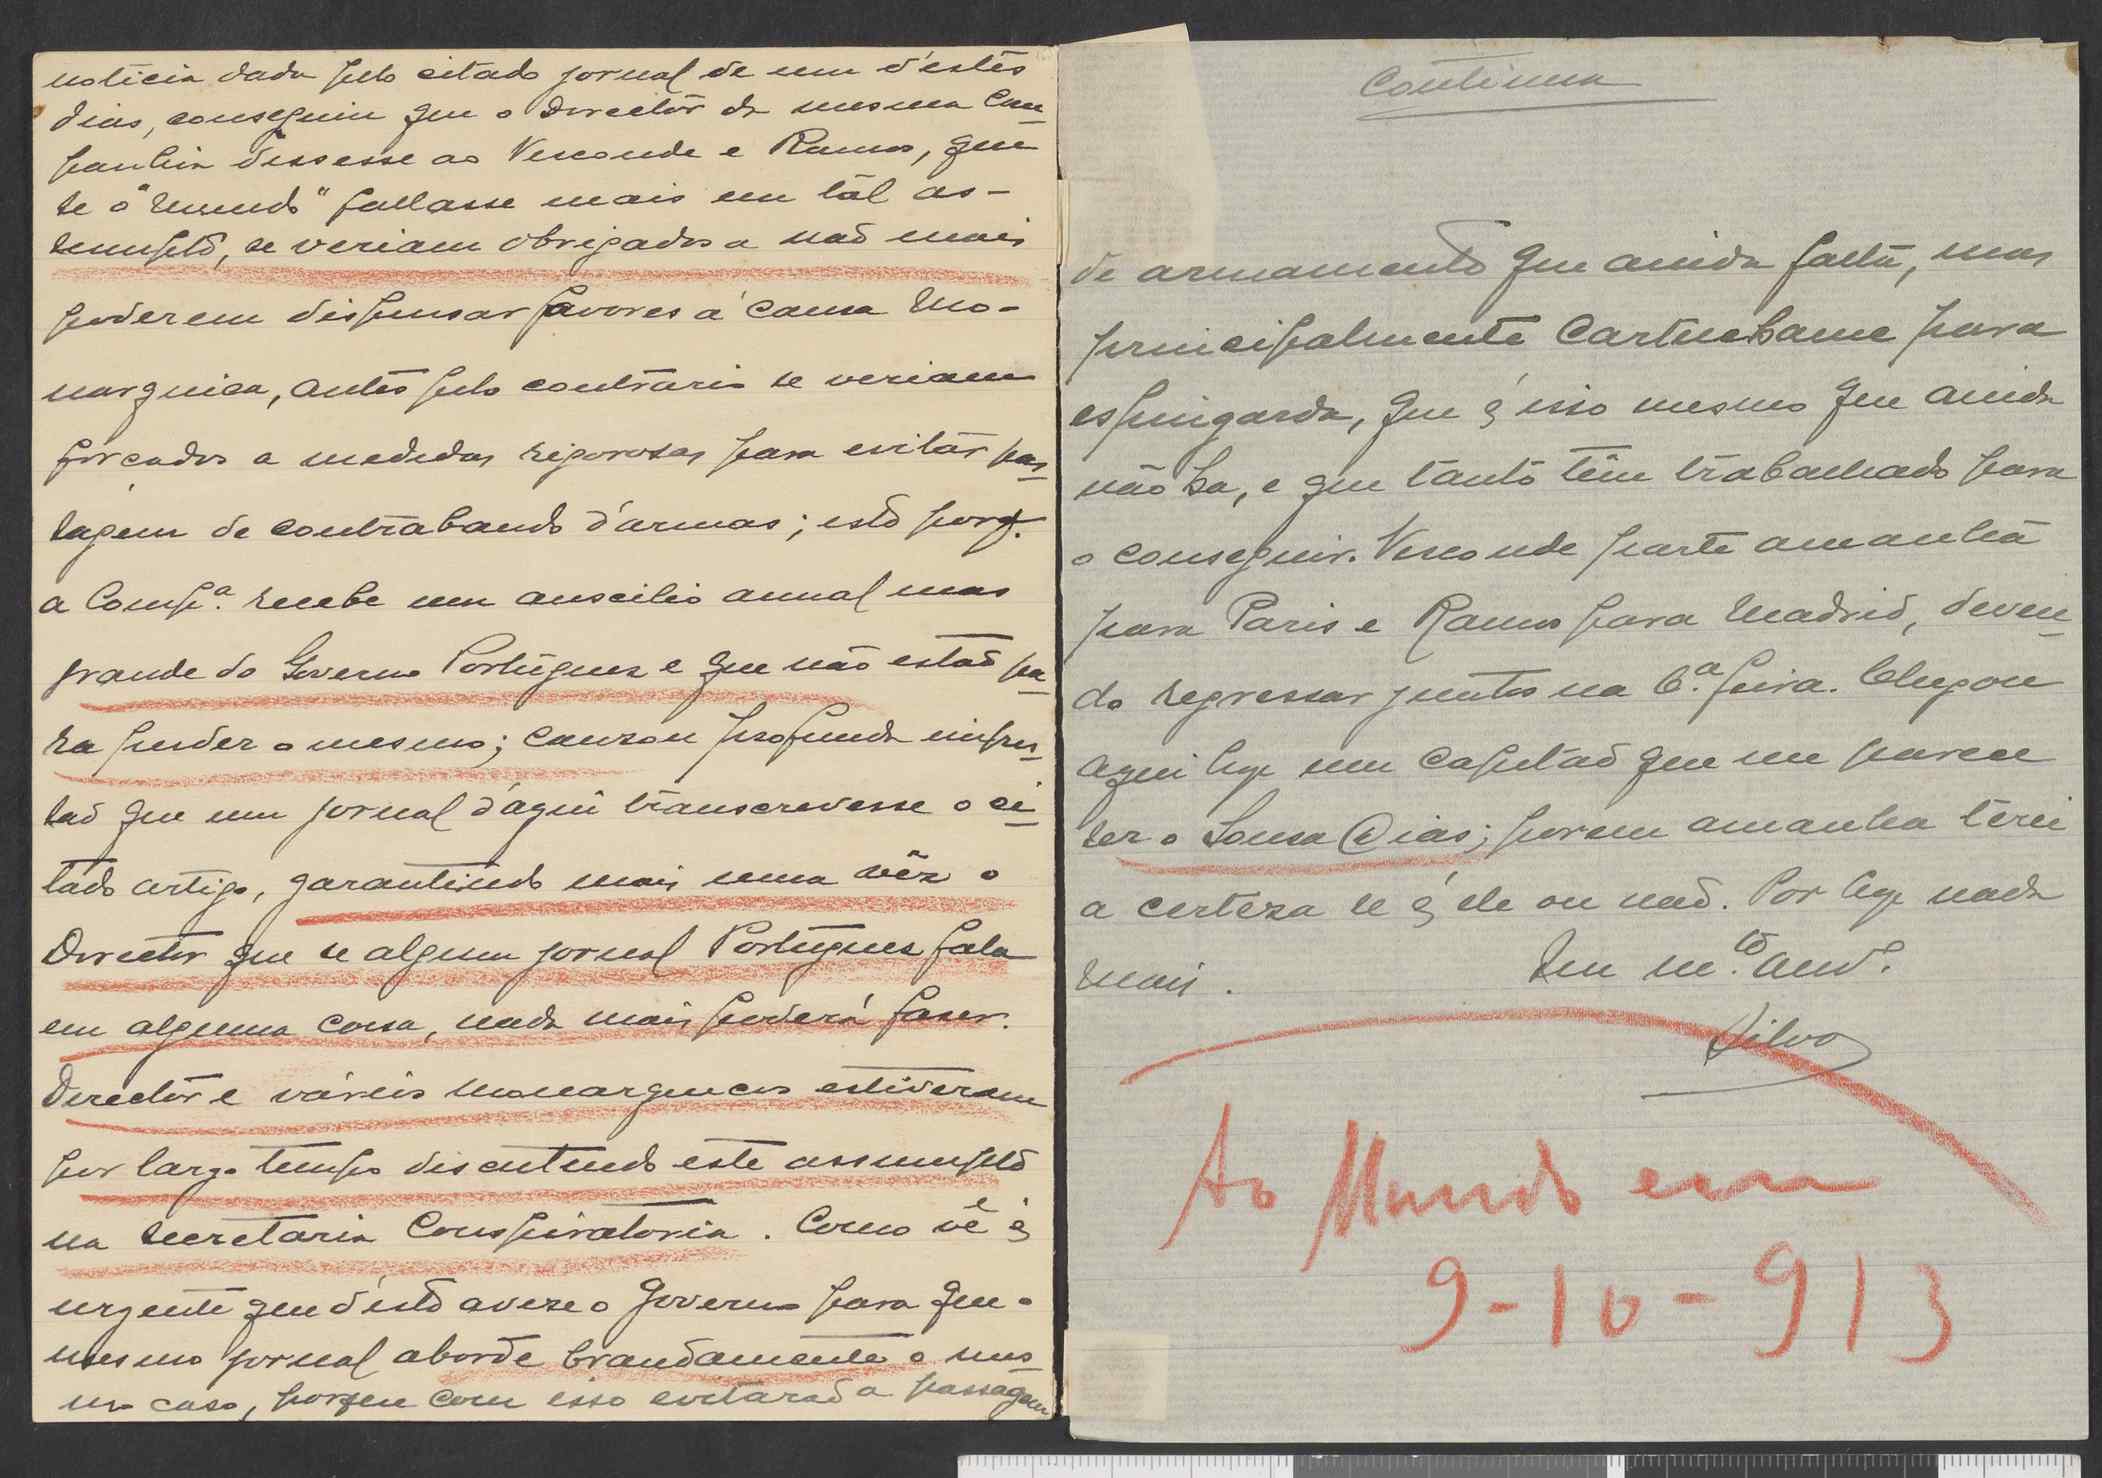 noticia dada pelo citado jornal de um d'estes
dias, conseguiu que o Director da mesma Com-
panhia dissesse ao Visconde e Ramos, que
se o "Mundo" fallasse mais em tál as-
sumpto, se veriam obrigados a não mais
poderem dispensar favores á causa Mo-
narquica, antes pelo contrario se veriam
forçados a medidas rigorosas para evitár pas-
sagem de contrabando d'armas; isto porq.
a Comp.ª recebe um auscilio annal mas
grande do Governo Portugues e que não estão pa-
ra perder o mesmo; causou profunda impres-
são que um jornal d'aqui transcrevesse o ci-
tado artigo, garantindo mais uma vêz o
Director que se algum jornal Portugues fala
em alguma coisa, nada mais poderá faser.
Director e vários monarquicos estiveram
por largo tempo discutindo este assumpto
na secretaria Conspiratoria. Como vê é
urgente que d'isto avise o Governo para que o
mesmo jornal aborde brandamente o mes-
mo caso, porque com isso evitarão a passagem
Continua
de armamento que ainda falta, mas
principalmente Cartuchame para
espingarda, que é isso mesmo que ainda
não ha, e que tanto têm trabalhado para
o conseguir. Visconde parte amanhã
para Paris e Ramos para Madrid, deven-
do regressar juntos na 6.ª feira. Chegou
aqui hoje um capitão que me parece
ser o Sousa Dias; porem amanha terei
a certeza se é ele ou não. Por hoje nada
mais. Seu m.to am.º
Silva
Ao Mundo em
9-10-913